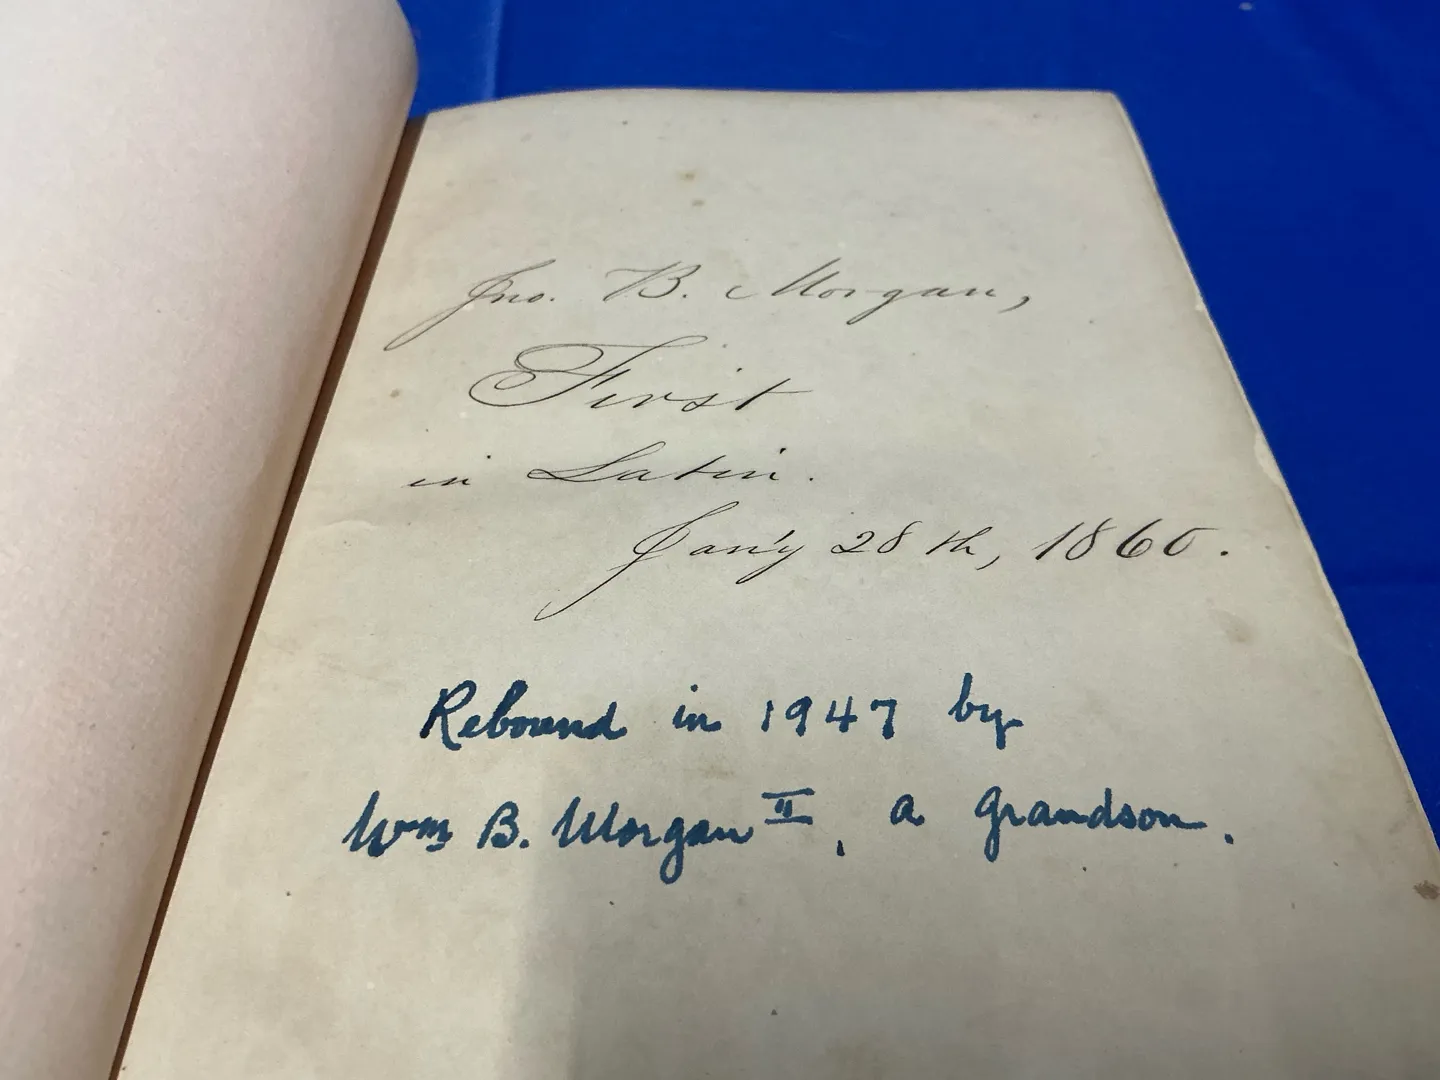 Jno. B. Morgan,
First
in Latin.
Jan'y 28th, 1860.
Rebound in 1947 by
Wm B. Morgan II, a grandson.